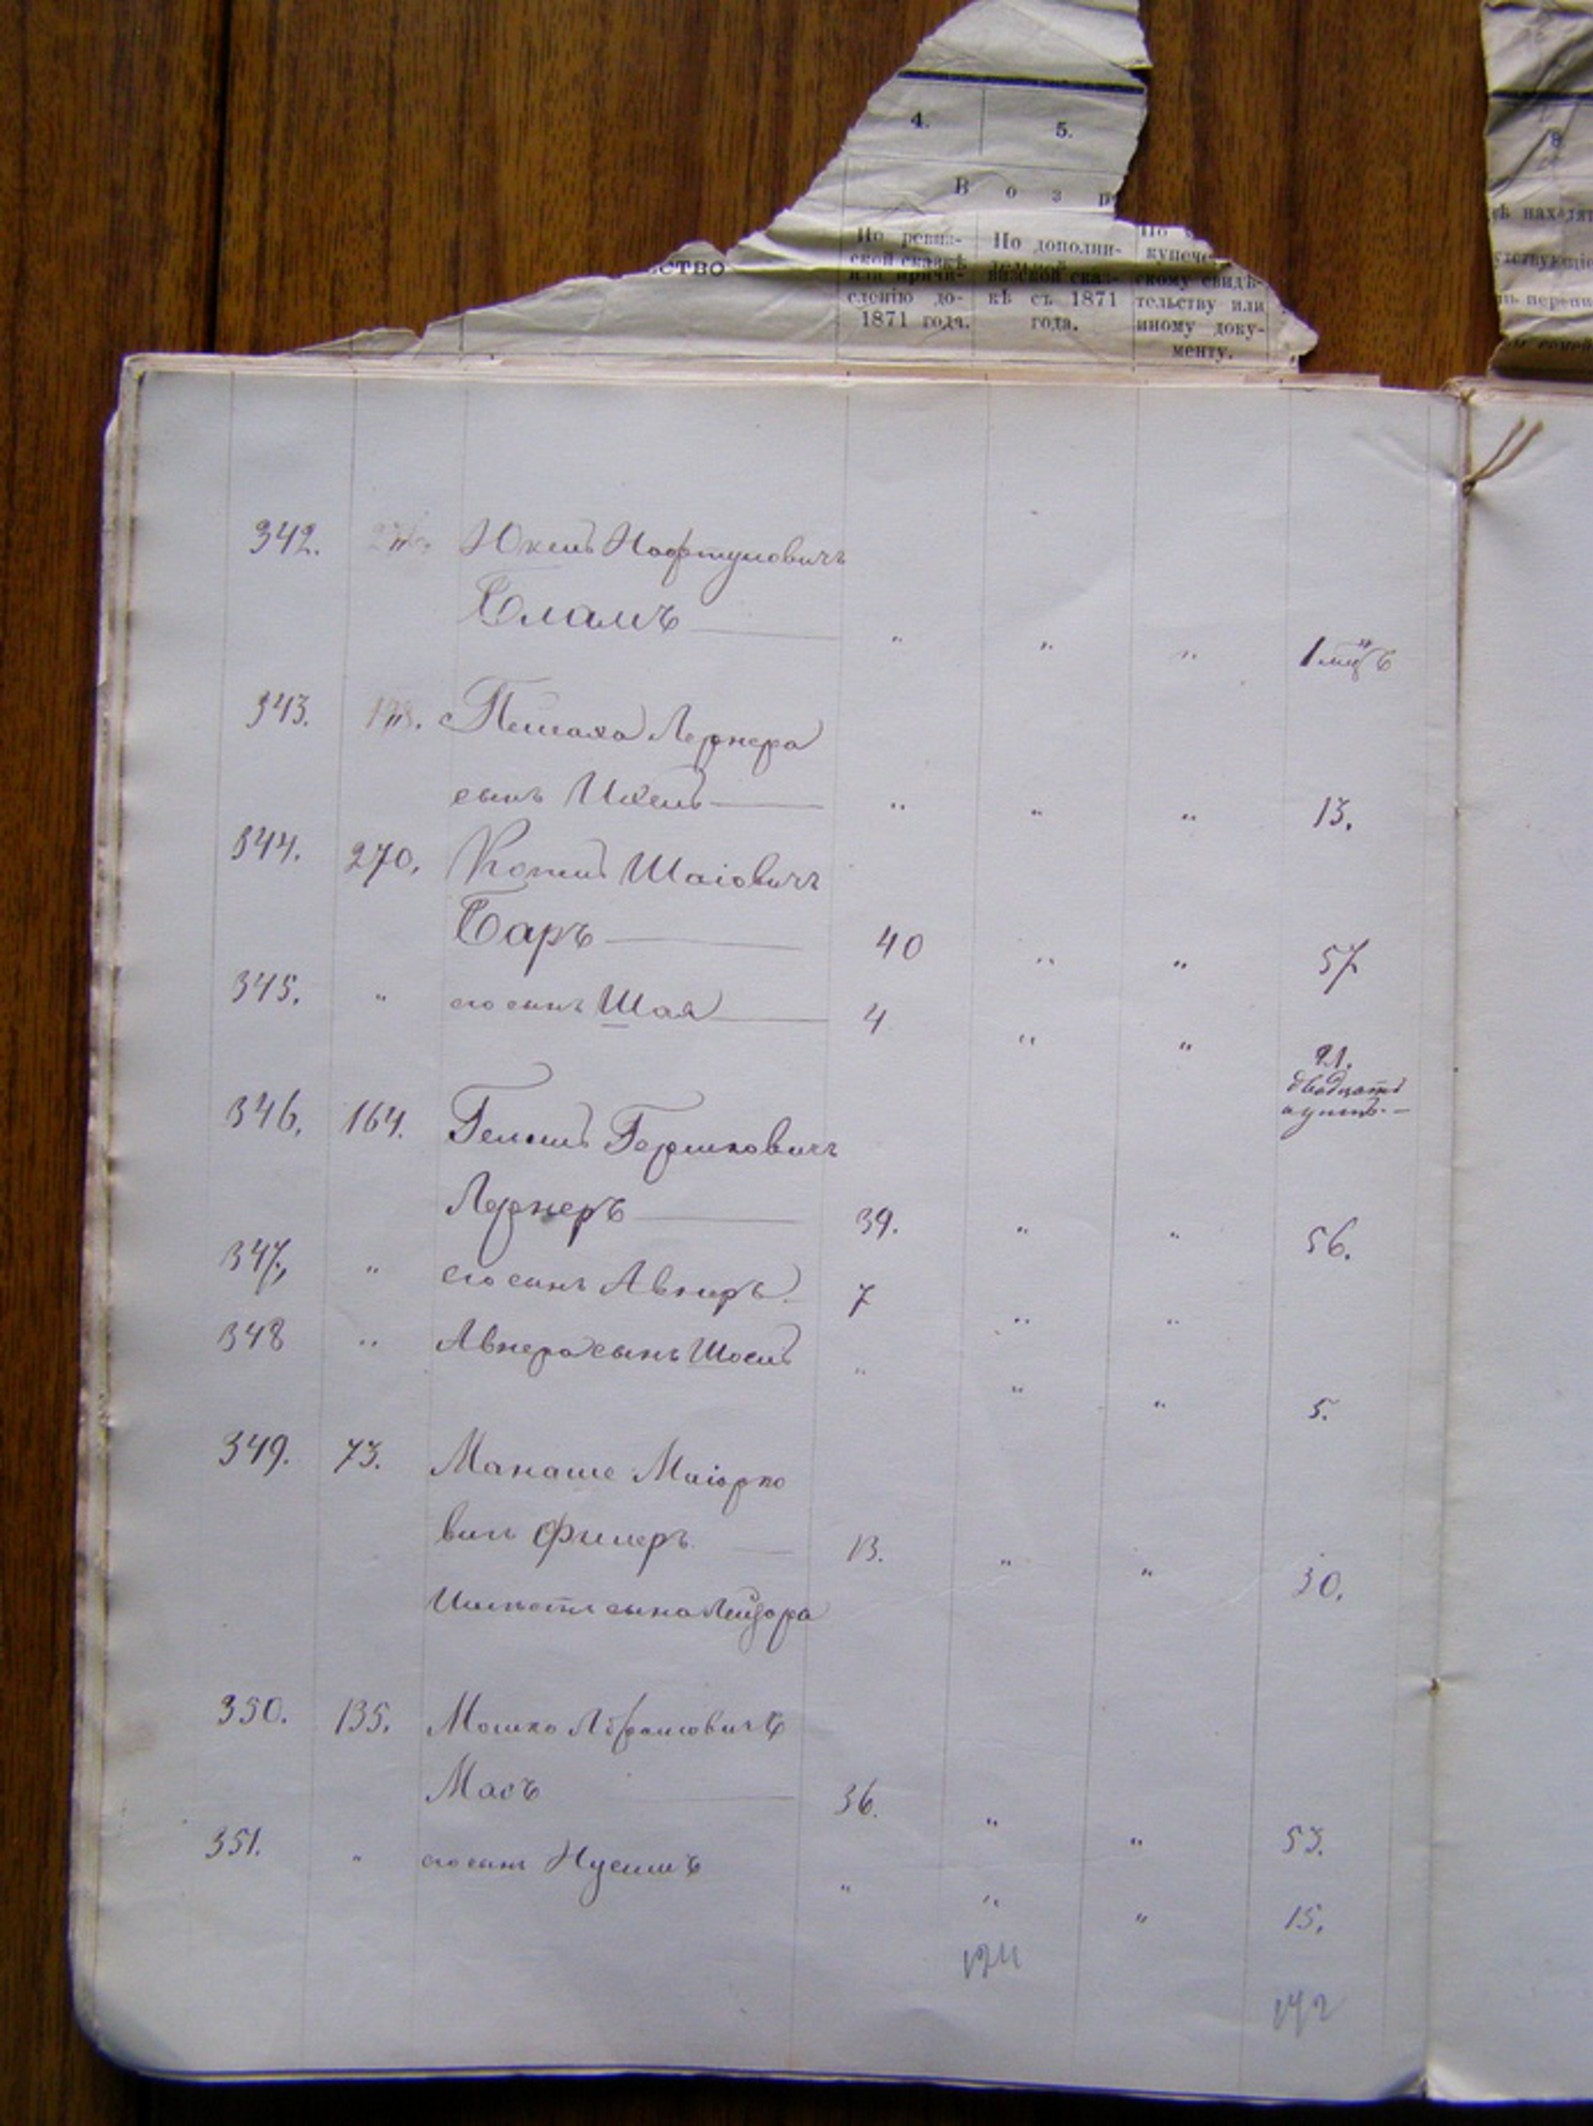 4. 5.
В о з р
8
ство
По ревиз-
ской сказкѣ
или причи-
сленію до-
1871 года.
По дополни-
тельной
визской сказ-
кѣ съ 1871
года.
По
купече
скому свидѣ-
тельству или
иному доку-
менту.
ѣ находят
утствующіе
перепи
и семей
342. Юкель Нафтуловичъ
Бламъ " " " 1 мцъ
343. Пешаха Лернера
сынъ Ихель " " " 13.
344. 270. Копель Шаіовичъ
Баръ 40 " " 57
345. " его сынъ Шая 4 " " 21.
двадцать
одинъ.
346. 164. Гершковичъ
Лернеръ 39. " " 56.
347. " его сынъ Авнеръ 7 " "
348 " Авнера сынъ " " " 5.
349. 73. Манаше Маіорко
вичъ Филеръ 13. " " 30.
сына Лейзора
350. 135. Мошко Абрамовичъ
Масъ 36. " " 53.
351. " его сынъ Нусимъ " " " 15.